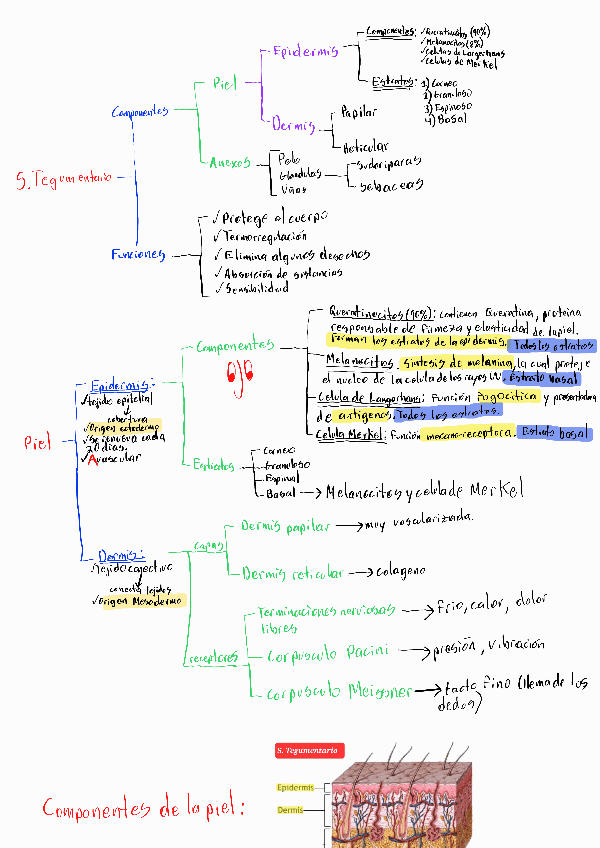 S. Tegumentario
Componentes
Piel
Epidermis
Componentes: ✓Queratinocitos (90%)
✓Melanocitos (8%)
✓Celulas de Largerhans
✓Celulas de Merkel
Estratos: 1) Corneo
2) Granuloso
3) Espinoso
4) Basal
Dermis
Papilar
Reticular
Anexos
Pelo
Glandulas
Uñas
Sudoriparas
Sebaceas
Funciones
✓Protege al cuerpo
✓Termorregulación
✓Elimina algunos desechos
✓Absorción de sustancias
✓Sensibilidad
Piel
Epidermis:
✓Tejido epitelial
cobertura
✓Origen ectodermo
✓Se renueva cada
20 dias.
✓Avascular
Componentes
ojo
Queratinocitos (90%): contienen Queratina, proteina
responsable de firmeza y elasticidad de la piel.
Forman los estratos de la epidermis. Todos los estratos
Melanocitos: sintesis de melanina, la cual protege
el nucleo de la celula de los rayos UV. Estrato Basal
Celula de Langerhans: Función Fagocitica y presentadora
de antigenos. Todos los estratos.
Celula Merkel: Función mecano-receptora. Estrato basal
Estratos
Corneo
Granuloso
Espinal
Basal → Melanocitos y celula de Merkel
Dermis:
✓Tejido conectivo
conecta tejidos
✓Origen Mesodermo
capas
Dermis papilar → muy vascularizada.
Dermis reticular → colageno
receptores
Terminaciones nerviosas
libres
→ frio, calor, dolor
Corpusculo Pacini → presión, vibración
Corpusculo Meissner → tacto fino (llema de los
dedos)
Componentes de la piel:
S. Tegumentario
Epidermis
Dermis